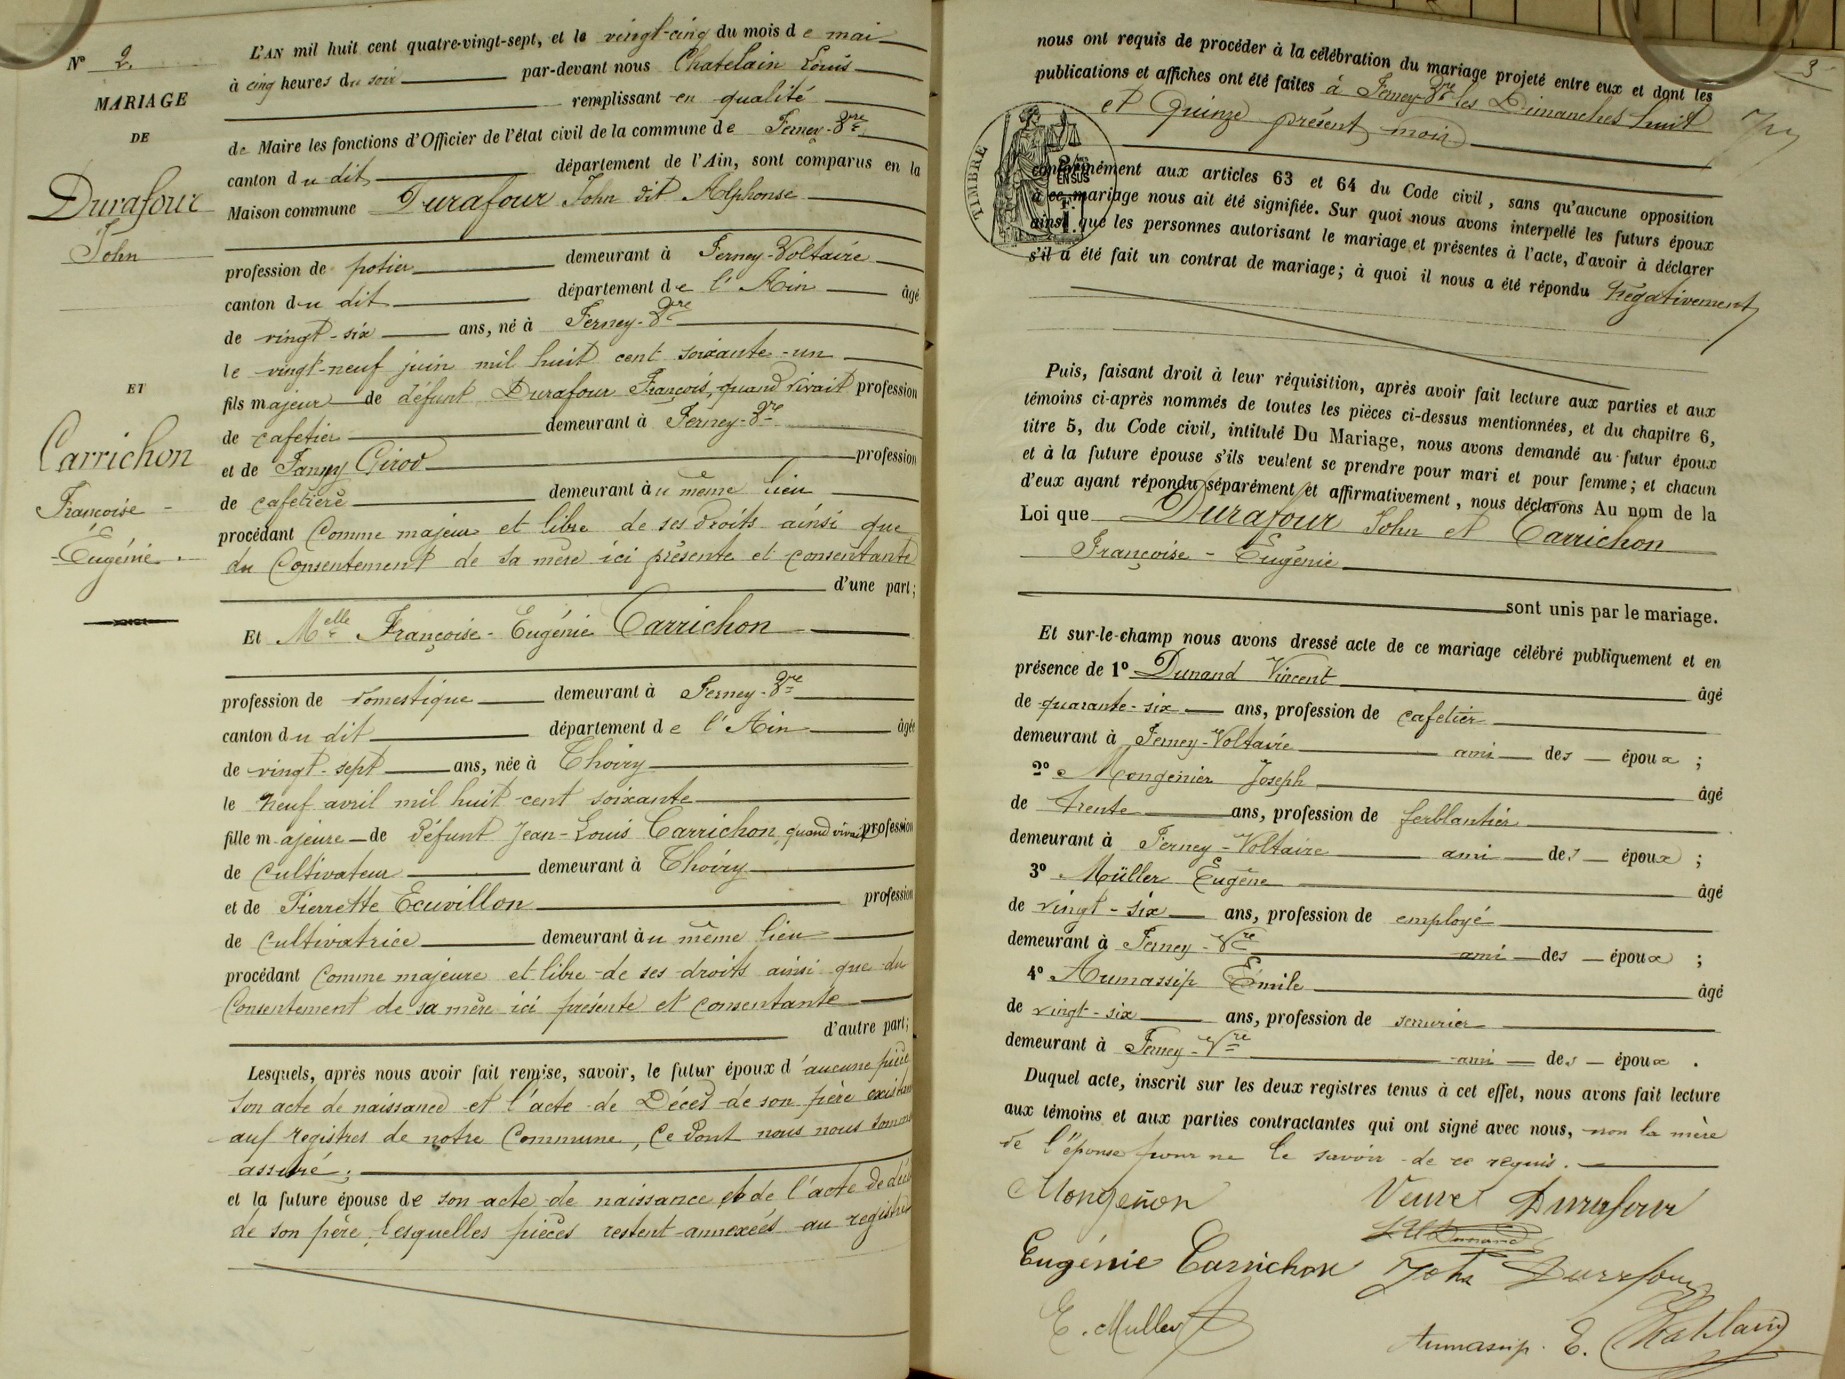 N° 2.
MARIAGE
DE
Durafour
John
ET
Carrichon
Françoise -
Eugénie
L'AN mil huit cent quatre-vingt-sept, et le vingt-cinq du mois de mai
à cinq heures du soir par-devant nous Chatelain Louis
remplissant en qualité
de Maire les fonctions d'Officier de l'état civil de la commune de Ferney-Vre
canton du dit département de l'Ain, sont comparus en la
Maison commune Durafour John dit Alphonse
profession de potier demeurant à Ferney-Voltaire
canton du dit département de l'Ain âgé
de vingt-six ans, né à Ferney-Vre
le vingt-neuf juin mil huit cent soixante-un
fils majeur de défunt Durafour François, quand vivait profession
de cafetier demeurant à Ferney-Vre
et de Fanny Girod profession
de cafetière demeurant au même lieu
procédant comme majeur et libre de ses droits ainsi que
du consentement de sa mère ici présente et consentante
d'une part;
Et Melle Françoise-Eugénie Carrichon
profession de domestique demeurant à Ferney-Vre
canton du dit département de l'Ain âgée
de vingt-sept ans, née à Thoiry
le neuf avril mil huit cent soixante
fille majeure de défunt Jean-Louis Carrichon, quand vivait profession
de cultivateur demeurant à Thoiry
et de Pierrette Ecuvillon profession
de cultivatrice demeurant au même lieu
procédant comme majeure et libre de ses droits ainsi que du
consentement de sa mère ici présente et consentante
d'autre part;
Lesquels, après nous avoir fait remise, savoir, le futur époux d'aucune pièce
son acte de naissance et l'acte de Décès de son père existant
aux registres de notre commune, ce dont nous nous sommes
assuré;
et la future épouse de son acte de naissance et de l'acte de décès
de son père, lesquelles pièces restent annexées au registre
3
nous ont requis de procéder à la célébration du mariage projeté entre eux et dont les
publications et affiches ont été faites à Ferney-Vre les Dimanches huit
et Quinze présent mois
TIMBRE
2/10 EN SUS
conformément aux articles 63 et 64 du Code civil, sans qu'aucune opposition
à ce mariage nous ait été signifiée. Sur quoi nous avons interpellé les futurs époux
ainsi que les personnes autorisant le mariage et présentes à l'acte, d'avoir à déclarer
s'il a été fait un contrat de mariage; à quoi il nous a été répondu négativement
Puis, faisant droit à leur réquisition, après avoir fait lecture aux parties et aux
témoins ci-après nommés de toutes les pièces ci-dessus mentionnées, et du chapitre 6,
titre 5, du Code civil, intitulé Du Mariage, nous avons demandé au futur époux
et à la future épouse s'ils veulent se prendre pour mari et pour femme; et chacun
d'eux ayant répondu séparément et affirmativement, nous déclarons Au nom de la
Loi que Durafour John et Carrichon
Françoise-Eugénie
sont unis par le mariage.
Et sur-le-champ nous avons dressé acte de ce mariage célébré publiquement et en
présence de 1° Dunand Vincent âgé
de quarante-six ans, profession de cafetier
demeurant à Ferney-Voltaire ami des époux ;
2° Mongenier Joseph âgé
de trente ans, profession de ferblantier
demeurant à Ferney-Voltaire ami des époux ;
3° Müller Eugène âgé
de vingt-six ans, profession de employé
demeurant à Ferney-Vre ami des époux ;
4° Aumassip Émile âgé
de vingt-six ans, profession de serrurier
demeurant à Ferney-Vre ami des époux .
Duquel acte, inscrit sur les deux registres tenus à cet effet, nous avons fait lecture
aux témoins et aux parties contractantes qui ont signé avec nous, non la mère
de l'épouse pour ne le savoir de ce requis.
Veuve Durafour
Dunand
Eugénie Carrichon John Durafour
E. Muller
Aumassip. E. Chatelain